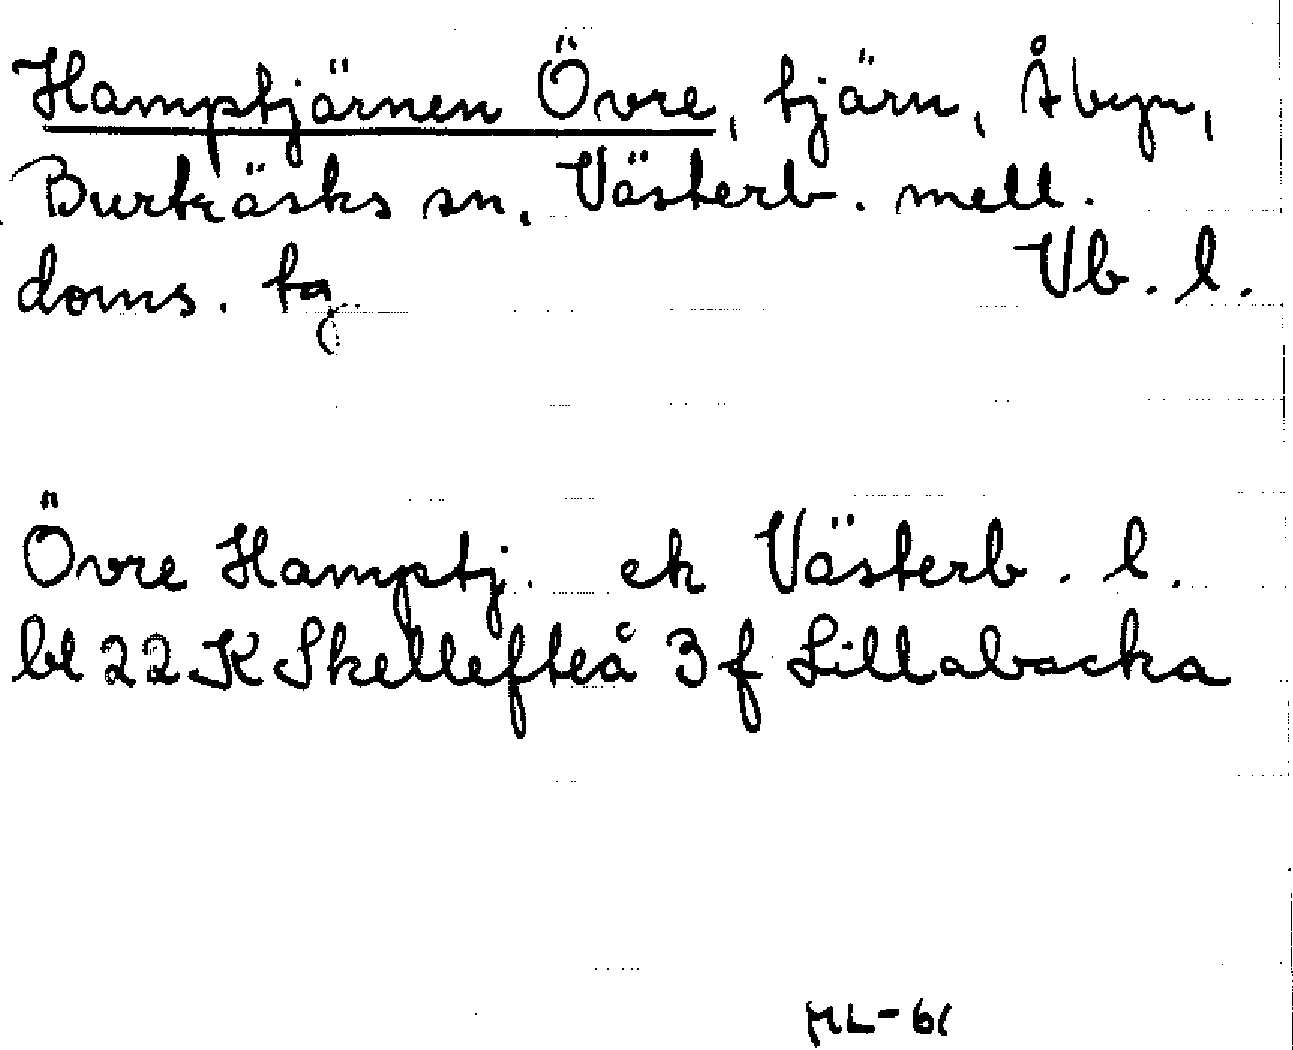 Hamptjärnen Övre, tjärn, Åbyn,
Burträsks sn, Västerb. mell.
doms. tg Vb. l.
Övre Hamptj. ek Västerb. l.
bl 22 K Skellefteå 3 f Lillabacka
ML-61